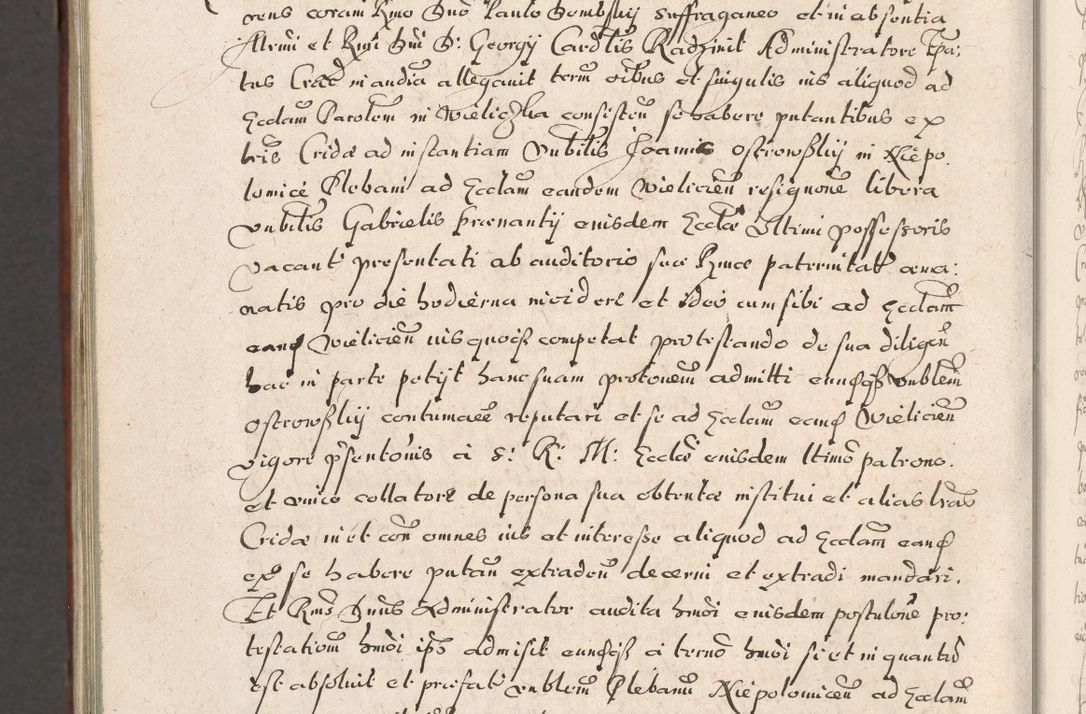 rens coram Rmo Dno Paulo Dembskij Suffraganeo et in absentia
Illrmi et Rmi Dni D: Georgij Cardlis Radziuil Administratore Cpa:
tus Crac in audia allegauit term oibus et singulis ius aliquod ad
Ecclam Parolem in Wieliczka consisten se habere putantibus ex
lris Cridae ad instantiam Vnblis Joannis Ostrowskij in Niepo
lomice Plebani ad Ecclam eandem Wielicien resignone libera
Vnblis Gabrielis Praenantij euisdem Ecclae Vltimi possessoris
vacant presentati ab auditorio suae Rmae paternitatis ema:
natis pro die hodierna incidere et ideo cum sibi ad Ecclam
eand Wielicien ius quoque competat protestando de sua diligen
hac in parte petijt hanc suam protonem admitti eundque vnblem
Ostrowskij contumacem reputari et se ad Ecclam eand Wielicien
vigore psentonis a S: R: M: Ecclae euisdem ltimo patrono
et vnico collatore de persona sua obtentae institui et alias lras
Cridae in et con omnes ius et interesse aliquod ad Ecclam eand
ex se habere putan extraden decerni et extradi mandari.
Et Rms Dnus Administrator audita hmoi euisdem postulone pro:
testationem hmoi ipso admisit eundque a termo hmoi si et in quantum
est absoluit et praefatum vnblem Plebanum Niepolomicen ad Ecclam